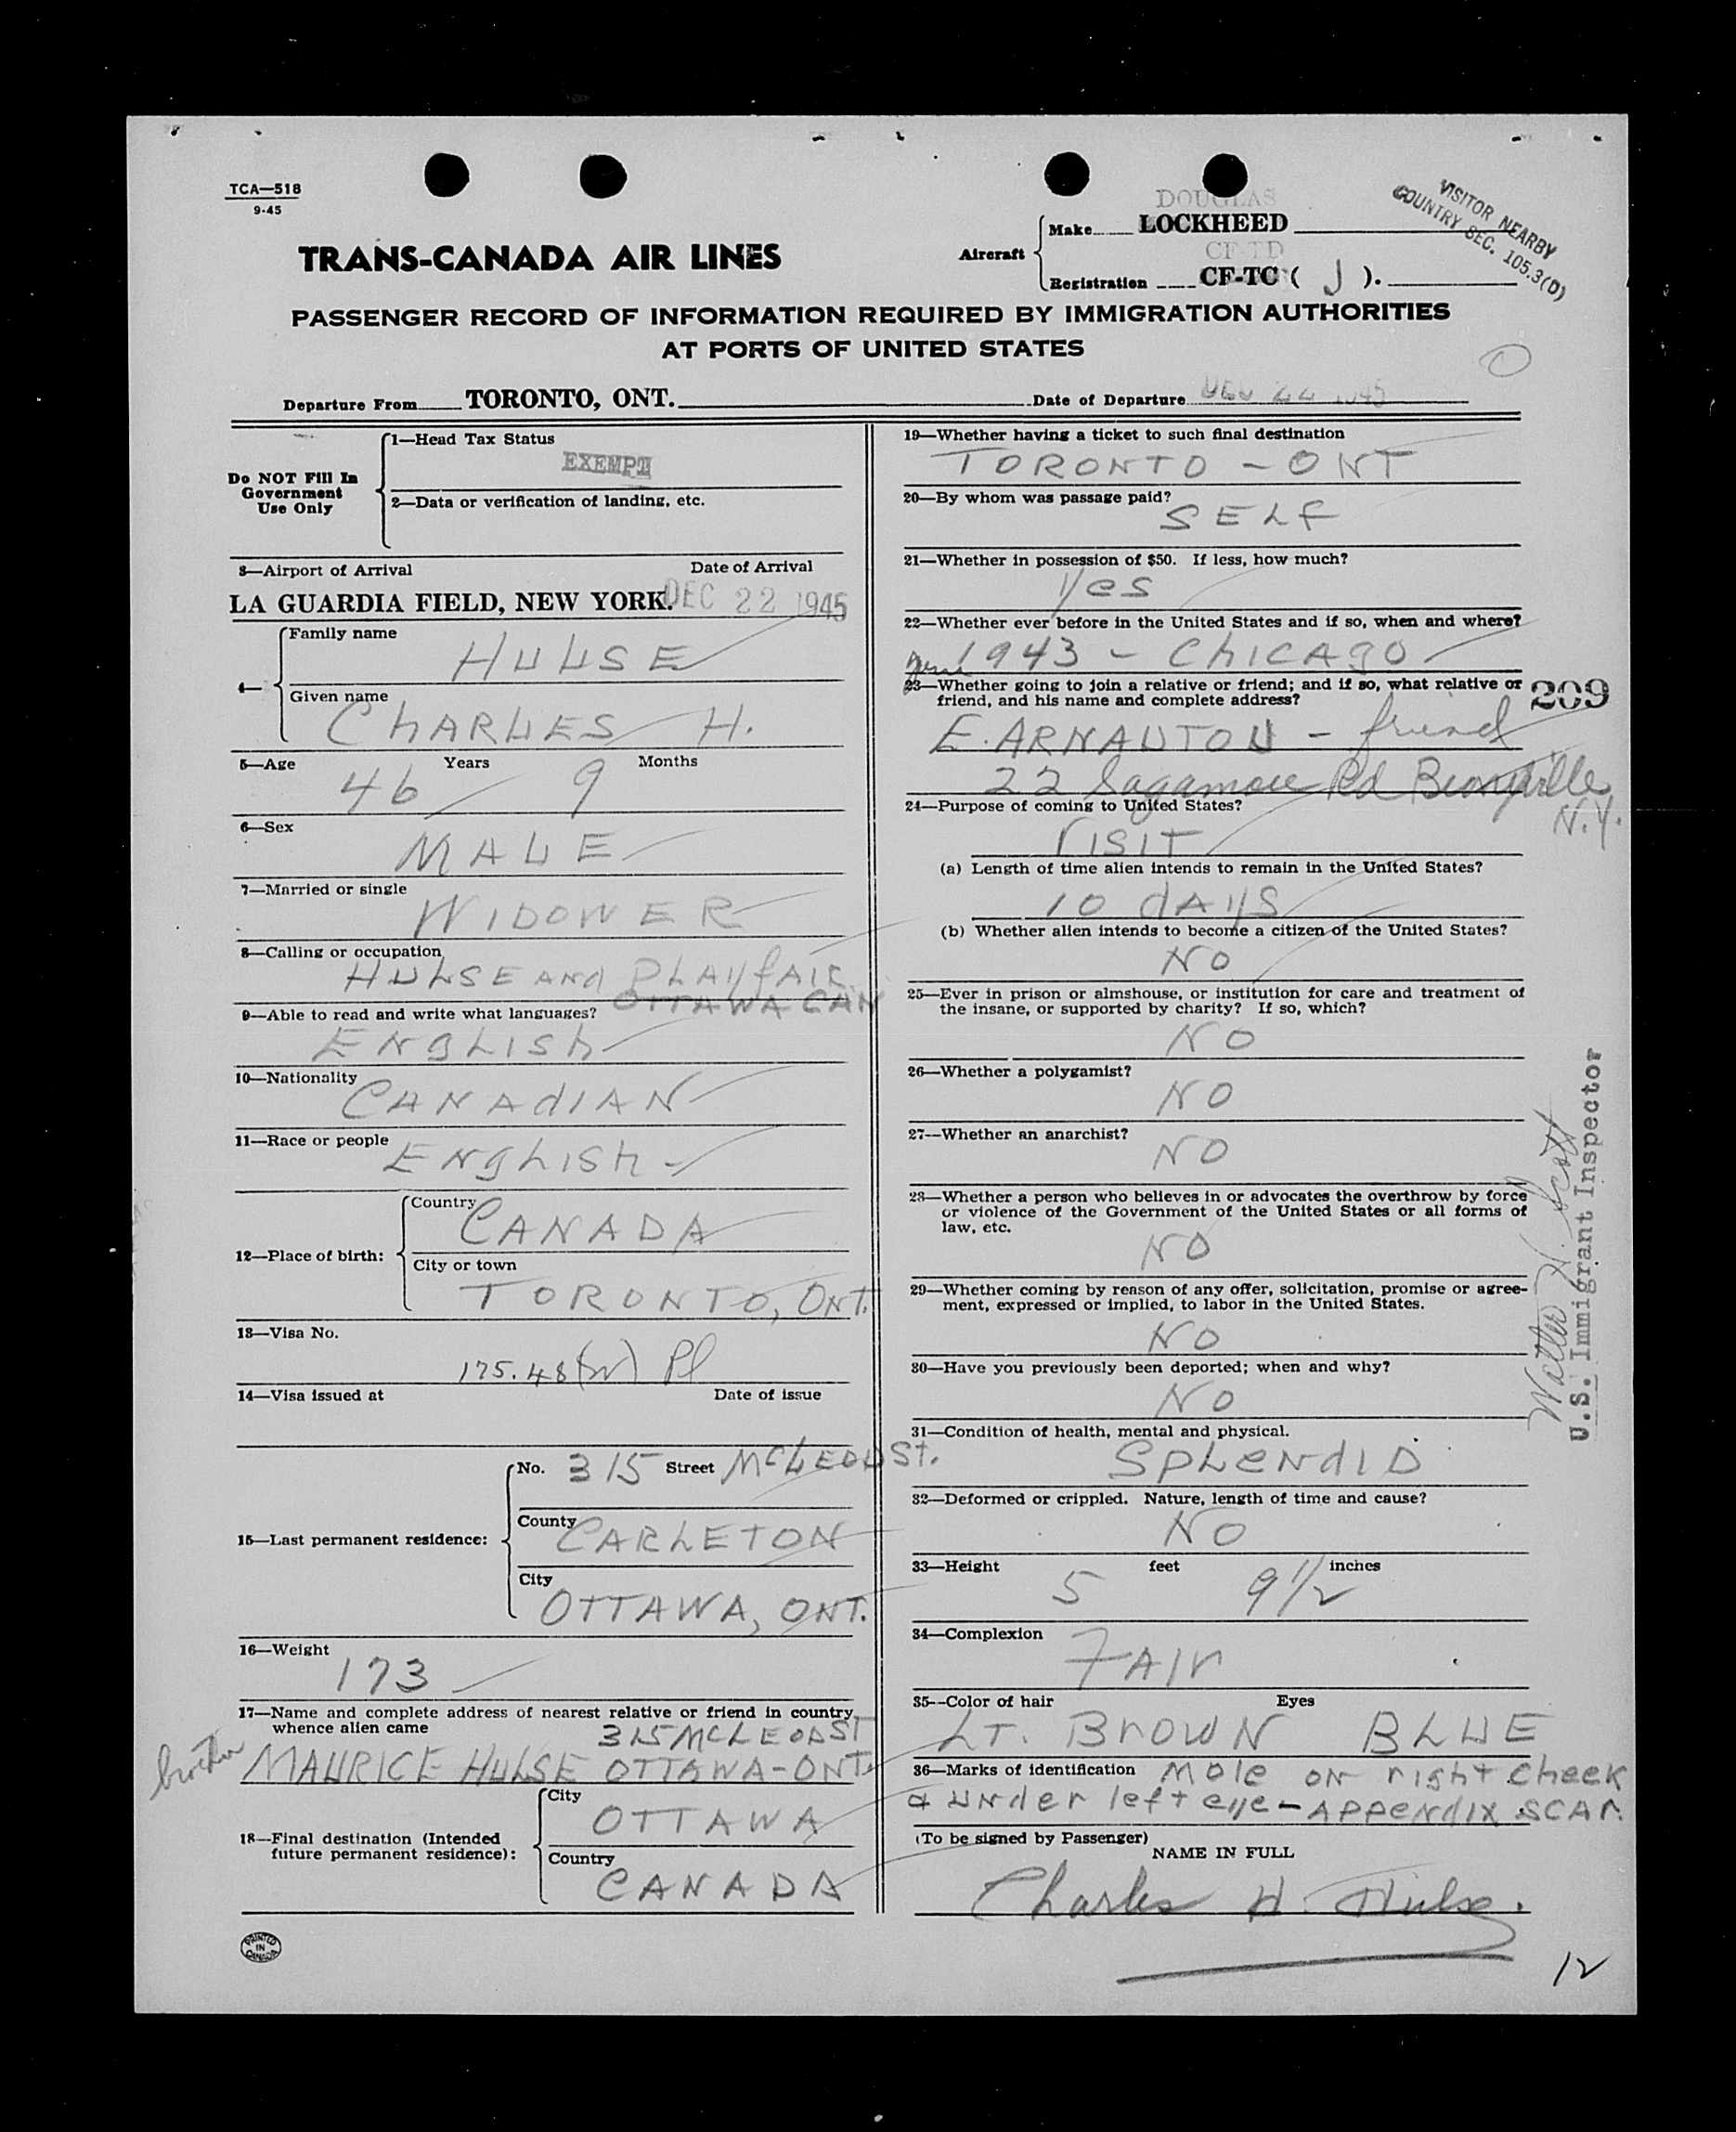 TCA—518
9-45
DOUGLAS
VISITOR NEARBY
COUNTRY SEC. 105.3(D)
Aircraft
Make LOCKHEED
CF-TD
Registration CF-TC ( J ).
TRANS-CANADA AIR LINES
PASSENGER RECORD OF INFORMATION REQUIRED BY IMMIGRATION AUTHORITIES
AT PORTS OF UNITED STATES
Departure From TORONTO, ONT. Date of Departure DEC 22 1945
Do NOT Fill In
Government
Use Only
1—Head Tax Status
EXEMPT
2—Data or verification of landing, etc.
3—Airport of Arrival Date of Arrival
LA GUARDIA FIELD, NEW YORK. DEC 22 1945
4—
Family name
HULSE
Given name
CHARLES H.
5—Age 46 Years 9 Months
6—Sex
MALE
7—Married or single
WIDOWER
8—Calling or occupation
HULSE AND PLAYFAIR
OTTAWA CAN
9—Able to read and write what languages?
ENGLISH
10—Nationality
CANADIAN
11—Race or people
ENGLISH
12—Place of birth:
Country
CANADA
City or town
TORONTO, ONT.
13—Visa No.
175.48 Pl
14—Visa issued at Date of issue
15—Last permanent residence:
No. 315 Street McLEOD ST.
County
CARLETON
City
OTTAWA, ONT.
16—Weight
173
17—Name and complete address of nearest relative or friend in country
whence alien came
315 McLEOD ST
brother MAURICE HULSE OTTAWA-ONT.
18—Final destination (Intended
future permanent residence):
City
OTTAWA
Country
CANADA
PRINTED
IN
CANADA
19—Whether having a ticket to such final destination
TORONTO - ONT
20—By whom was passage paid?
SELF
21—Whether in possession of $50. If less, how much?
Yes
22—Whether ever before in the United States and if so, when and where?
1943 - CHICAGO
23—Whether going to join a relative or friend; and if so, what relative or
friend, and his name and complete address?
209
E. ARNAUTOU - friend
22 Sagamore Rd Bronxville
N.Y.
24—Purpose of coming to United States?
VISIT
(a) Length of time alien intends to remain in the United States?
10 dAYS
(b) Whether alien intends to become a citizen of the United States?
NO
25—Ever in prison or almshouse, or institution for care and treatment of
the insane, or supported by charity? If so, which?
NO
26—Whether a polygamist?
NO
27—Whether an anarchist?
NO
28—Whether a person who believes in or advocates the overthrow by force
or violence of the Government of the United States or all forms of
law, etc.
NO
29—Whether coming by reason of any offer, solicitation, promise or agree-
ment, expressed or implied, to labor in the United States.
NO
30—Have you previously been deported; when and why?
NO
31—Condition of health, mental and physical.
SPLENdID
32—Deformed or crippled. Nature, length of time and cause?
NO
33—Height 5 feet 9 1/2 inches
34—Complexion
FAIR
35—Color of hair Eyes
LT. BROWN BLUE
36—Marks of identification Mole on right cheek
& under left eye - APPENDIX SCAR.
(To be signed by Passenger)
NAME IN FULL
Charles H. Hulse.
12
Walter H. Scott
U.S. Immigrant Inspector